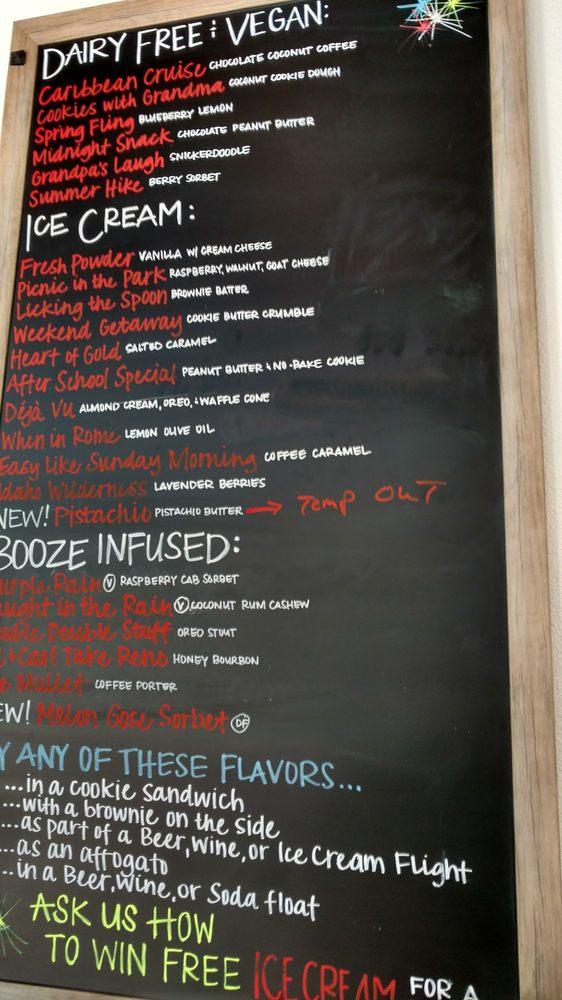 DAIRY FREE & VEGAN:
Caribbean Cruise CHOCOLATE COCONUT COFFEE
Cookies with Grandma COCONUT COOKIE DOUGH
Spring Fling BLUEBERRY LEMON
Midnight Snack CHOCOLATE PEANUT BUTTER
Grandpa's Laugh SNICKERDOODLE
Summer Hike BERRY SORBET
ICE CREAM:
Fresh Powder VANILLA W/ CREAM CHEESE
Picnic in the Park RASPBERRY, WALNUT, GOAT CHEESE
Licking the Spoon BROWNIE BATTER
Weekend Getaway COOKIE BUTTER CRUMBLE
Heart of Gold SALTED CARAMEL
After School Special PEANUT BUTTER & NO-BAKE COOKIE
Déjà Vu ALMOND CREAM, OREO, & WAFFLE CONE
When in Rome LEMON OLIVE OIL
Easy Like Sunday Morning COFFEE CARAMEL
Idaho Wilderness LAVENDER BERRIES
NEW! Pistachio PISTACHIO BUTTER → Temp OUT
BOOZE INFUSED:
urple Rain V RASPBERRY CAB SORBET
aught in the Rain V COCONUT RUM CASHEW
ouble Double Stuff OREO STOUT
& Carl Take Reno HONEY BOURBON
e Mullet COFFEE PORTER
EW! Melon Gose Sorbet DF
Y ANY OF THESE FLAVORS...
...in a cookie sandwich
...with a brownie on the side
...as part of a Beer, Wine, or Ice Cream Flight
...as an affogato
...in a Beer, Wine, or Soda float
ASK US HOW
TO WIN FREE ICE CREAM FOR A